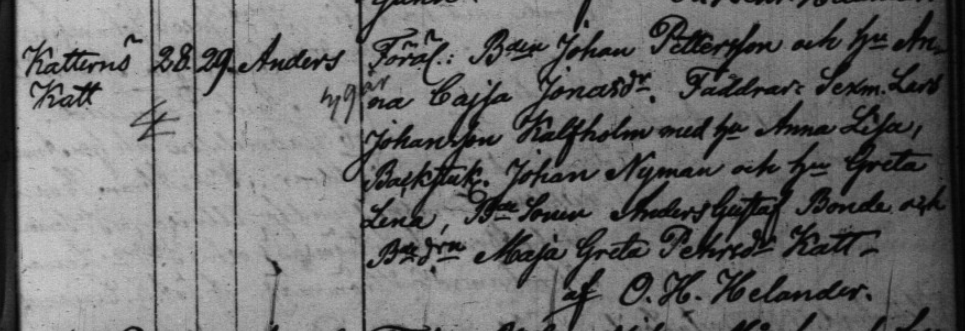 Katterns 28 29 Anders Förä.: Bden Johan Pettersson och hu An-
Katt 49 år na Cajsa Jonasdr. Faddrar: Sexm. Lars
4 Johansson Kalfholm med hu Anna Lisa,
Backstuk. Johan Nyman och hu Greta
Lena, Bde Sonen Anders Gustaf Bonde och
Bdedrn Maja Greta Pehrsdr Katt-
af O. H. Helander.